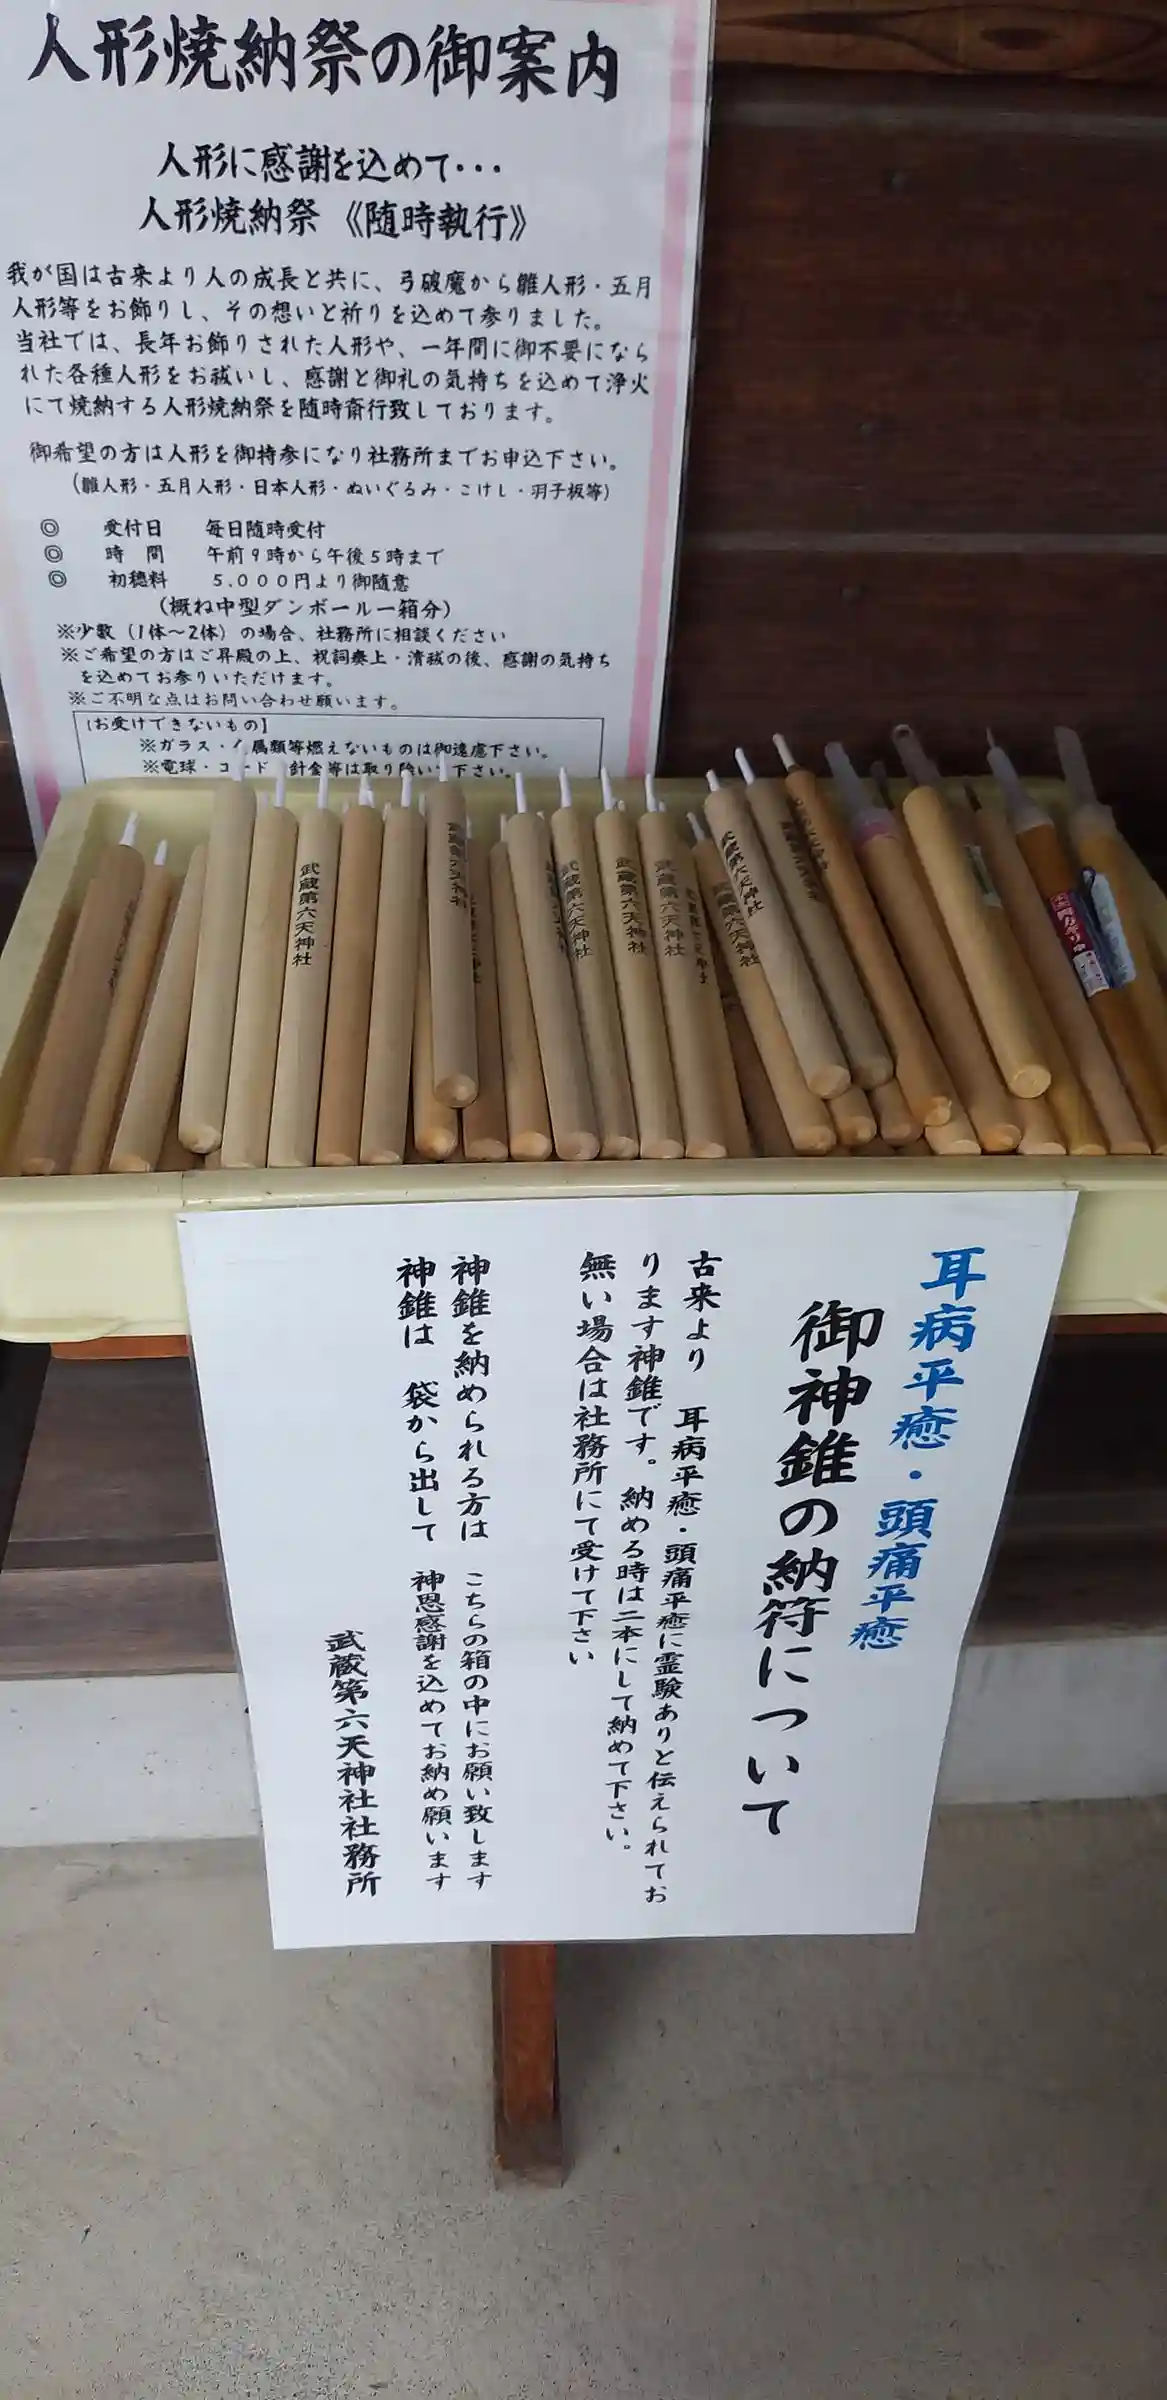 人形焼納祭の御案内
人形に感謝を込めて・・・
人形焼納祭 《随時執行》
我が国は古来より人の成長と共に、弓破魔から雛人形・五月
人形等をお飾りし、その想いと祈りを込めて参りました。
当社では、長年お飾りされた人形や、一年間に御不要になら
れた各種人形をお祓いし、感謝と御礼の気持ちを込めて浄火
にて焼納する人形焼納祭を随時斎行致しております。
御希望の方は人形を御持参になり社務所までお申込下さい。
(雛人形・五月人形・日本人形・ぬいぐるみ・こけし・羽子板等)
◎ 受付日 毎日随時受付
◎ 時間 午前9時から午後5時まで
◎ 初穂料 5.000円より御随意
(概ね中型ダンボール一箱分)
※少数(1体〜2体)の場合、社務所に相談ください
※ご希望の方はご昇殿の上、祝詞奏上・清祓の後、感謝の気持ち
を込めてお参りいただけます。
※ご不明な点はお問い合わせ願います。
【お受けできないもの】
※ガラス・ 属類等燃えないものは御遠慮下さい。
※電球・コード 針金等は取り除い 下さい。
武蔵第六天神社
武蔵第六天神社
武蔵第六天神社
武蔵第六天神社
武蔵第六天神社
武蔵第六天神社
武蔵第六天神社
耳病平癒・頭痛平癒
御神錐の納符について
古来より 耳病平癒・頭痛平癒に霊験ありと伝えられてお
ります神錐です。納める時は二本にして納めて下さい。
無い場合は社務所にて受けて下さい
神錐を納められる方は こちらの箱の中にお願い致します
神錐は 袋から出して 神恩感謝を込めてお納め願います
武蔵第六天神社社務所